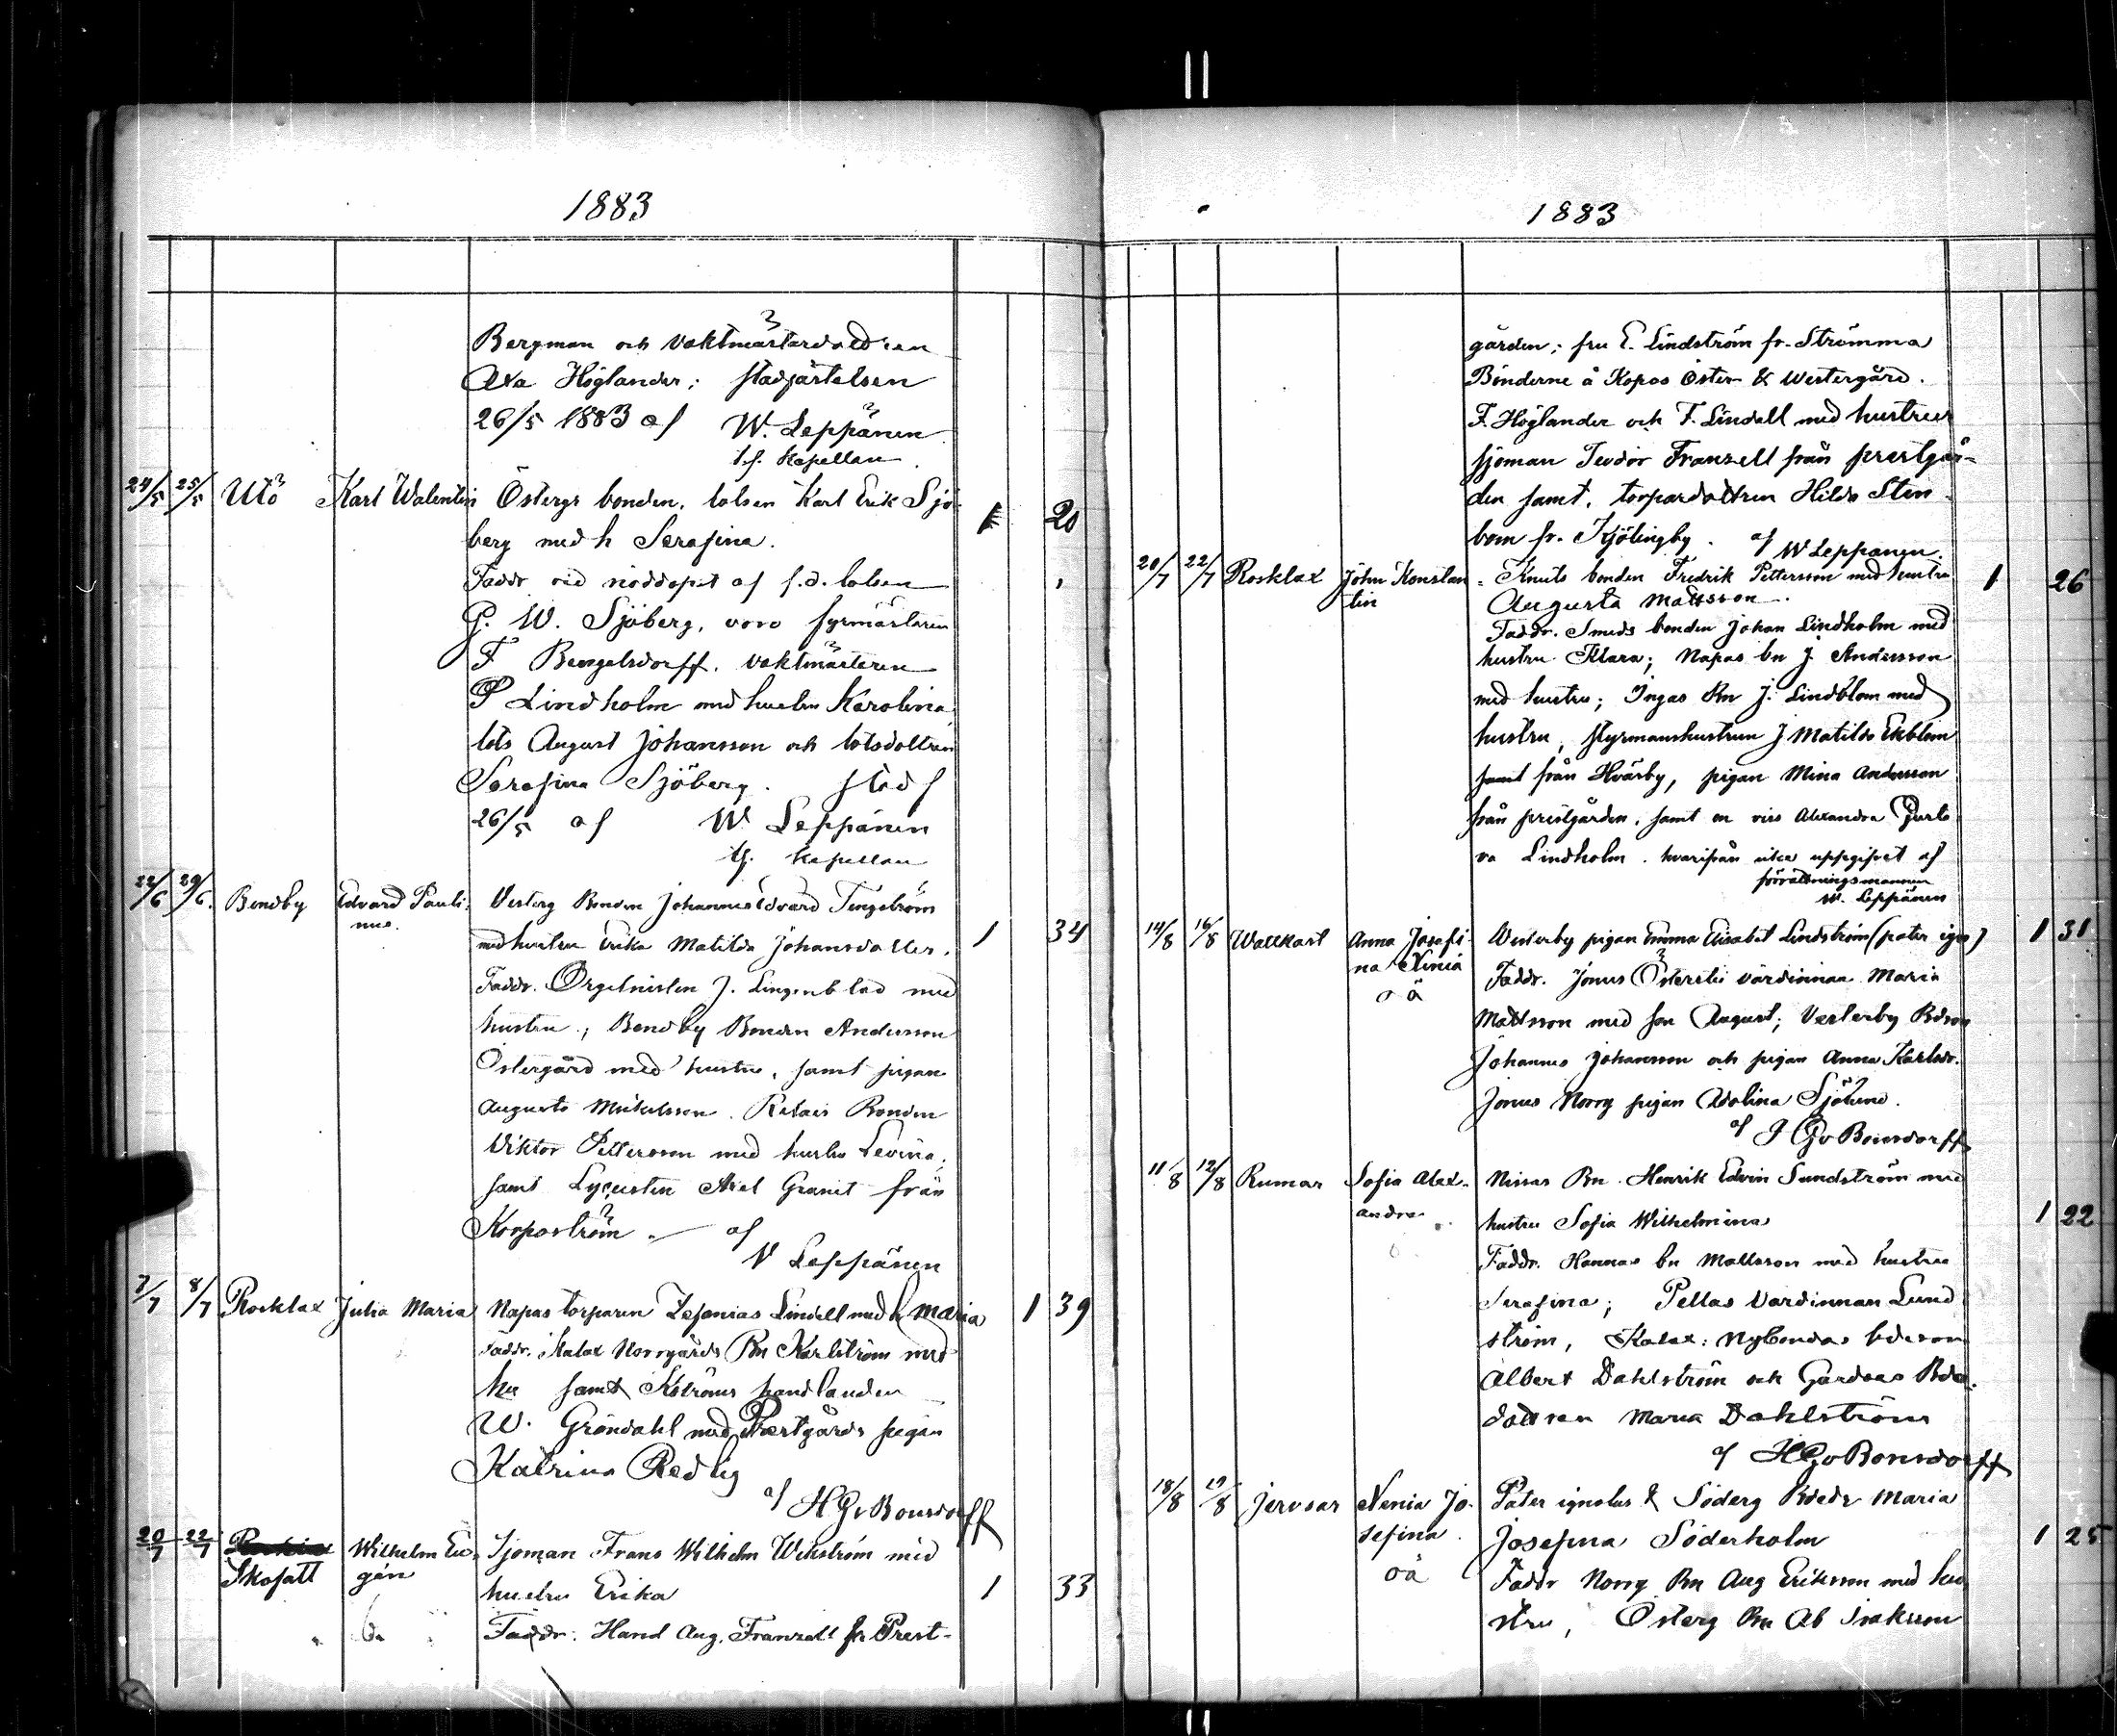 1883
Bergman och vaktmästardottren
Axa Höglander; stadfästelsen
26/5 1883 af W. Leppänen
tf. Kapellan
24/5 25/5 Utö Karl Walentin Östergs bonden, lotsen Karl Erik Sjö- 20
berg med h Serafina.
Faddr vid nöddopet af f.d. lotsen
G. W. Sjöberg, voro fyrmästaren
F Bengelsdorff, vaktmästeren
P Lindholm med hustru Karolina,
lots August Johansson och lotsdottren
Serafina Sjöberg. stadf
26/5 af W. Leppänen
tf. Kapellan
22/6 29/6 Bendby Edvard Pauli- Vesterg Bonden Johannes Edvard Tengström
nus. med hustru Erika Matilda Johansdotter. 1 34
Faddr. Orgelnisten J. Lingenblad med
hustru; Bendby Bonden Andersson
Östergård med hustru, samt pigan
Augusta Mickelsson. Retais Bonden
Viktor Pettersson med hustru Levina,
samt Axel Granit från
Korpoström — af
W Leppänen
7/7 8/7 Rosklax Julia Maria Napas torparen Zefanias Lindell med h Maria 1 39
Faddr. Kalax Norrgårds Bn Karlström med
hu samt Kströms handlanden
W. Gröndahl med Prestgårds pigan
Katrina Redlig
af H G v Bonsdorff
20/7 22/7 Skofatt Wilhelm Eu- Sjöman Frans Wilhelm Wikström med
gén hustru Erika 1 33
Faddr. Hand Aug. Franzell fr Prest-
1883
gården; fru E. Lindström fr. Strömma
Bönderne å Kopos Öster & Westergård.
F. Höglander och F. Lindell med hustrur
sjöman Teodor Franzell från prestgår-
den samt, torpardottren Hilda Sten-
bom fr. Kjölingby. af W Leppänen.
20/7 22/7 Rosklax John Konstan- Knuts bonden Fredrik Pettersson med hustru 1 26
tin Augusta Mattsson.
Faddr. Smeds bonden Johan Lindholm med
hustru Klara; Napas bn J. Andersson
med hustru; Ingas Bn J. Lindblom med
hustru, styrmanshustrun J Matilda Ekblom
samt från Hväsby, pigan Mina Andersson
från prestgården, samt en viss Alexandra
va Lindholm. hvarifrån icke uppgifvet af
förrättningsmannen
W. Leppänen
14/8 16/8 Wattkast Anna Josefi- Westerby pigan Emma Elisabet Lindström (pater ign) 1 31
na Xenia Faddr. Jonus värdinnan Maria
oä Mattsson med son August; Vesterby Bdeson
Johannes Johansson och pigan Anna Karlsdr.
Jonus Norrg pigan Adolina Sjölund.
af H G v Bonsdorff
11/8 12/8 Rumar Sofia Alex- Nissas Bn. Henrik Edvin Sundström med
andra hustru Sofia Wilhelmina 1 22
Faddr. Hannas bn Mattsson med hustru
Serafina; Pellas Värdinnan Lund
ström, Kalax: Nybondas bdeson
Albert Dahlström och Gårdsas Bde-
dottren Maria Dahlström
af H G v Bonsdorff
18/8 19/8 Jervsar Xenia Jo- Pater ignotus & Söderg Bdedr Maria
sefina. Josefina Söderholm 1 25
oä Faddr Norrg Bn Aug Eriksson med hu
stru, Österg Bn Ab Isaksson